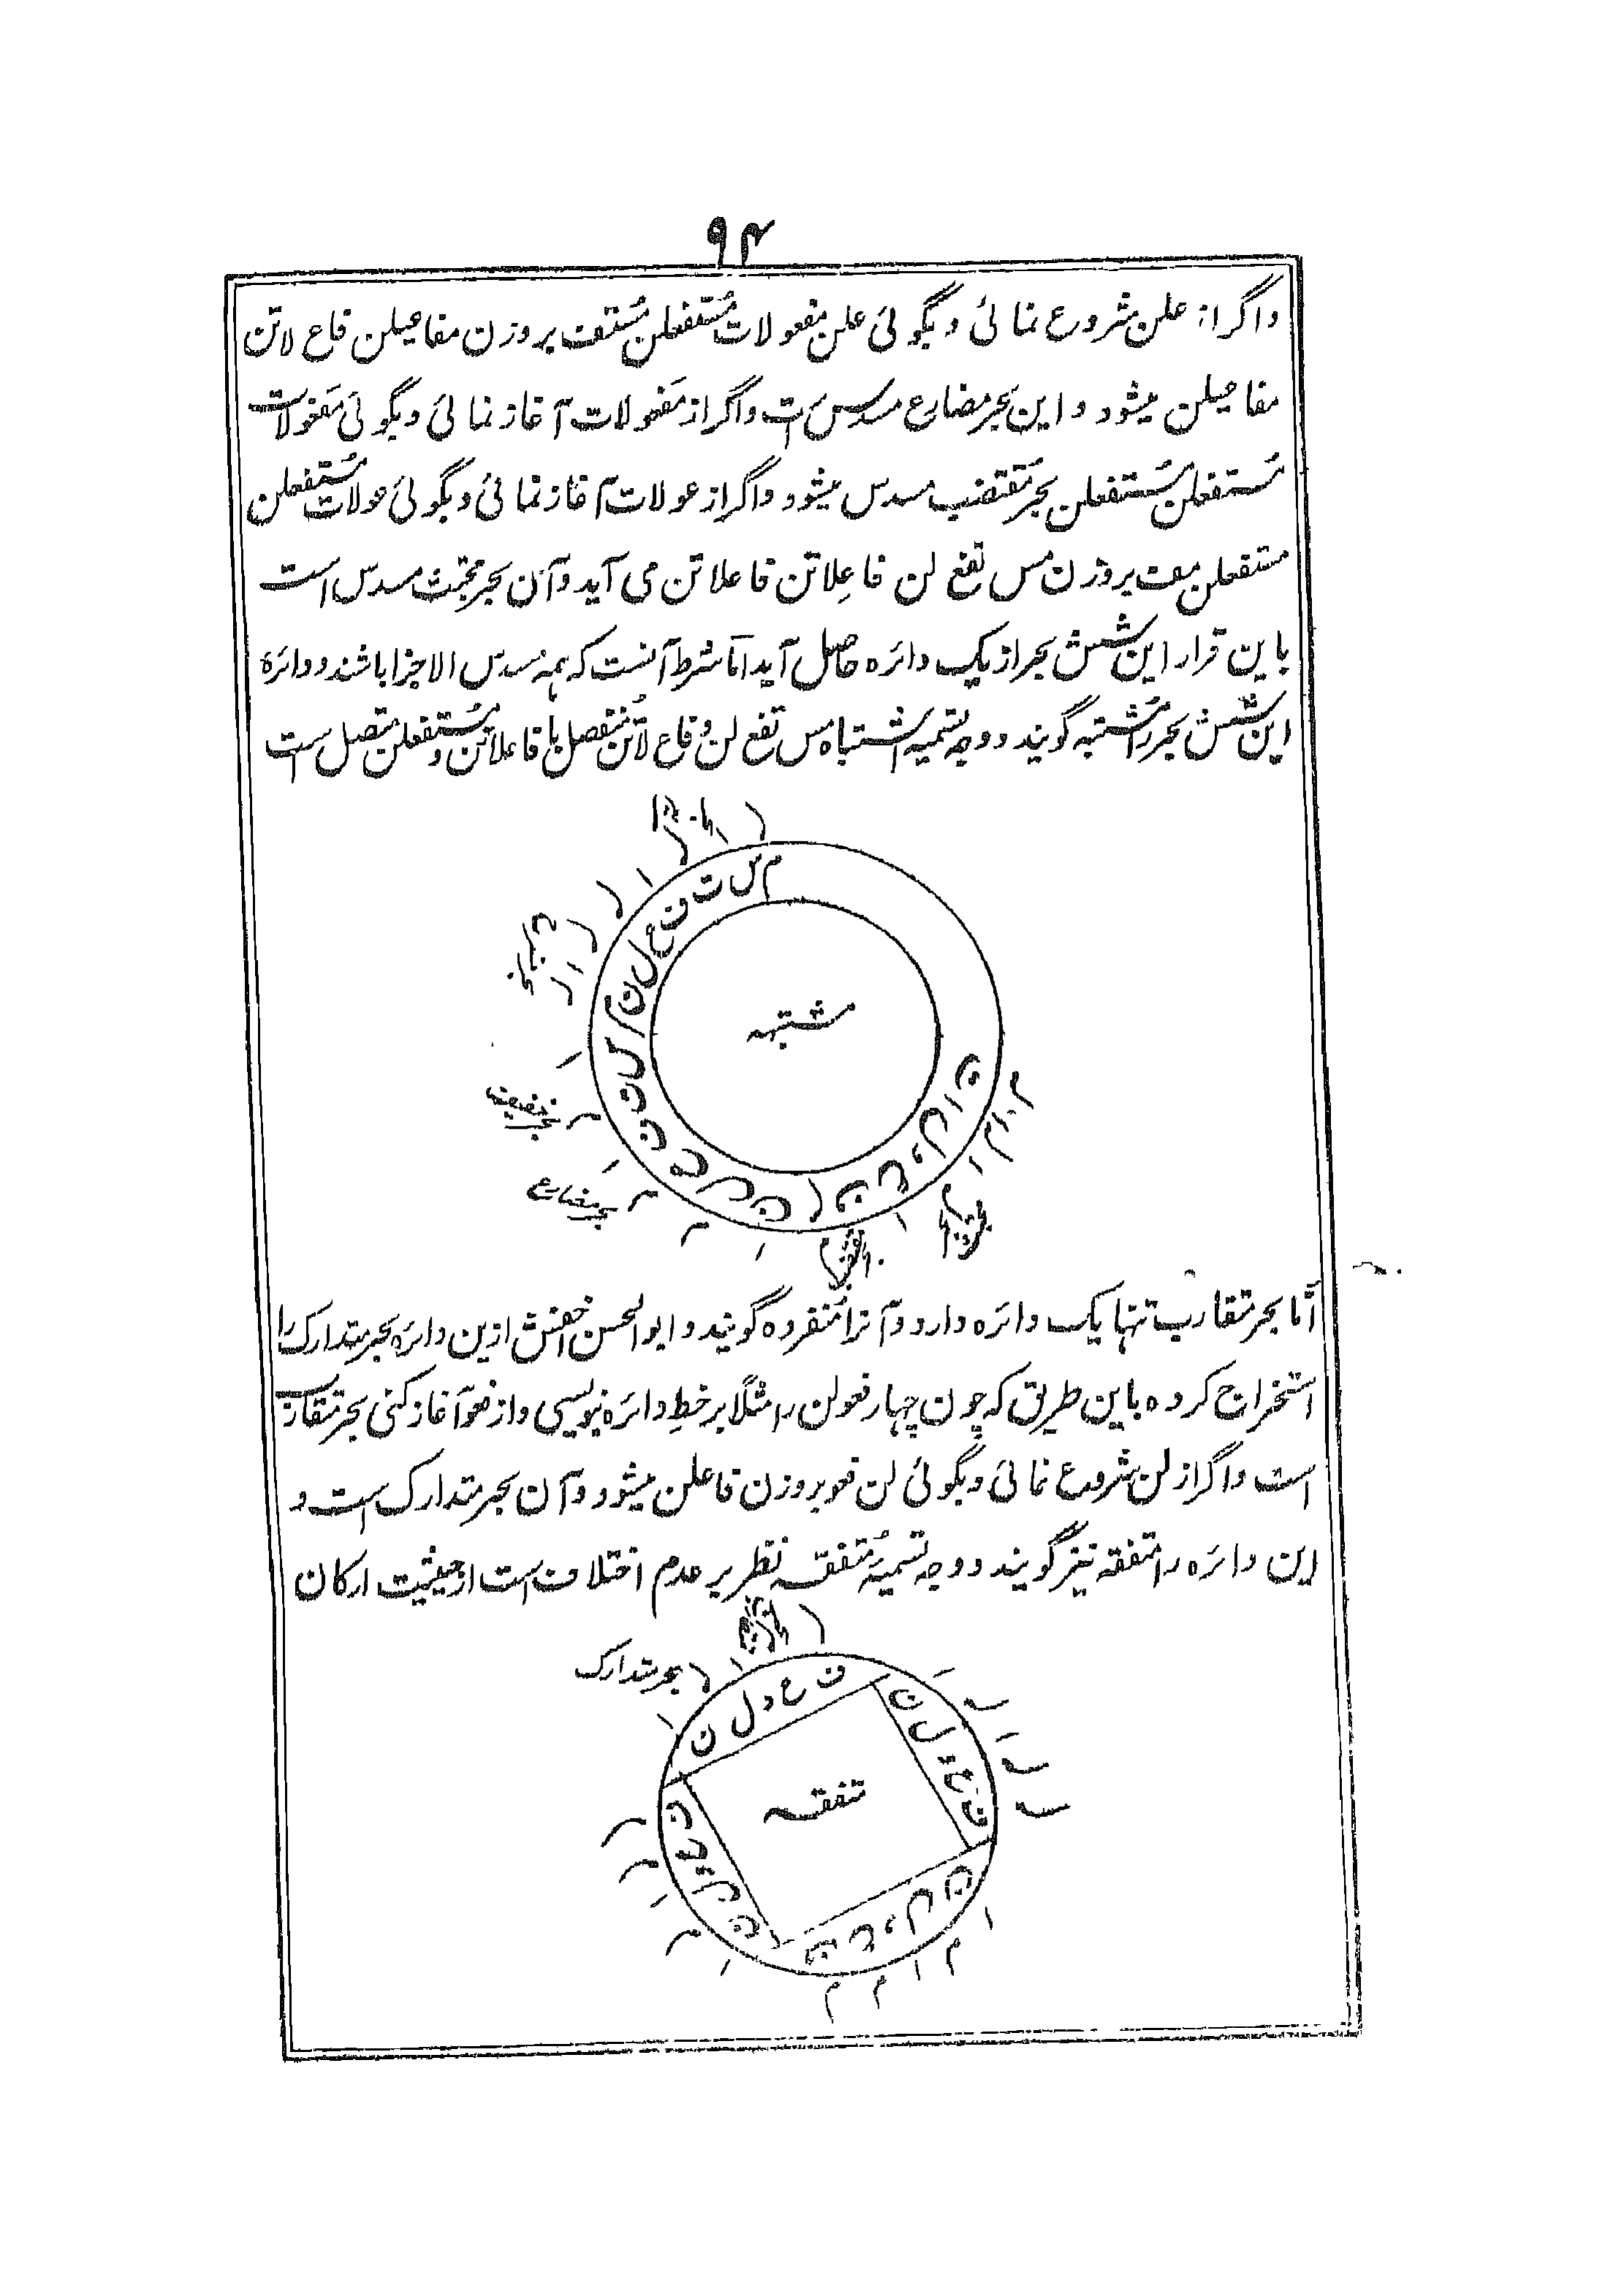 ۹۴
واگر از علن شروع نمائی و بگوئی علن مفعولات مُستفعلن مُستف بر وزن مفاعیلن فاع لاتن
مفاعیلن میشود و این بحر مضارع مسدس است واگر از مَفعولات آغاز نمائی و بگوئی مَفعولات
مُستفعلن مُستفعلن بحر مُقتضب مسدس میشود واگر از عولات آغاز نمائی و بگوئی عولات مُستفعلن
مستفعلن مف بر وزن مس تفع لن فاعِلاتن فاعلاتن می آید و آن بحر مجتث مسدس است
باین قرار این شش بحر از یک دائره حاصل آید امّا شرط آنست که همه مُسدس الاجزا باشند و دائرهٔ
این شش بحر را مُشتبه گویند و وجه تسمیه اشتباه مس تفع لن و فاع لاتن مُنفصل با فاعلاتن و مُستفعلن متصل است
م س ت ف ع ل ن م س ت ف ع ل ن م ف ع و ل ا ت
مشتبه
بحر خفیف
بحر مضارع
امّا بحر متقارب تنها یک دائره دارد و آنرا مُنفرده گویند و ابوالحسن اخفش ازین دائره بحر متدارک را
استخراج کرده باین طریق که چون چهار فعولن را مثلًا بر خطِ دائره نویسی و از فعو آغاز کنی بحر متقارب
است واگر از لن شروع نمائی و بگوئی لن فعو بر وزن فاعلن میشود و آن بحر متدارک است و
این دائره را متفقه نیز گویند و وجه تسمیهٔ مُتفقه نظر بر عدم اختلاف است از حیثیت ارکان
بحر متدارک
ف ع و ل ن
ف ع و ل ن
ف ع و ل ن
ف ع و ل ن
متفقه